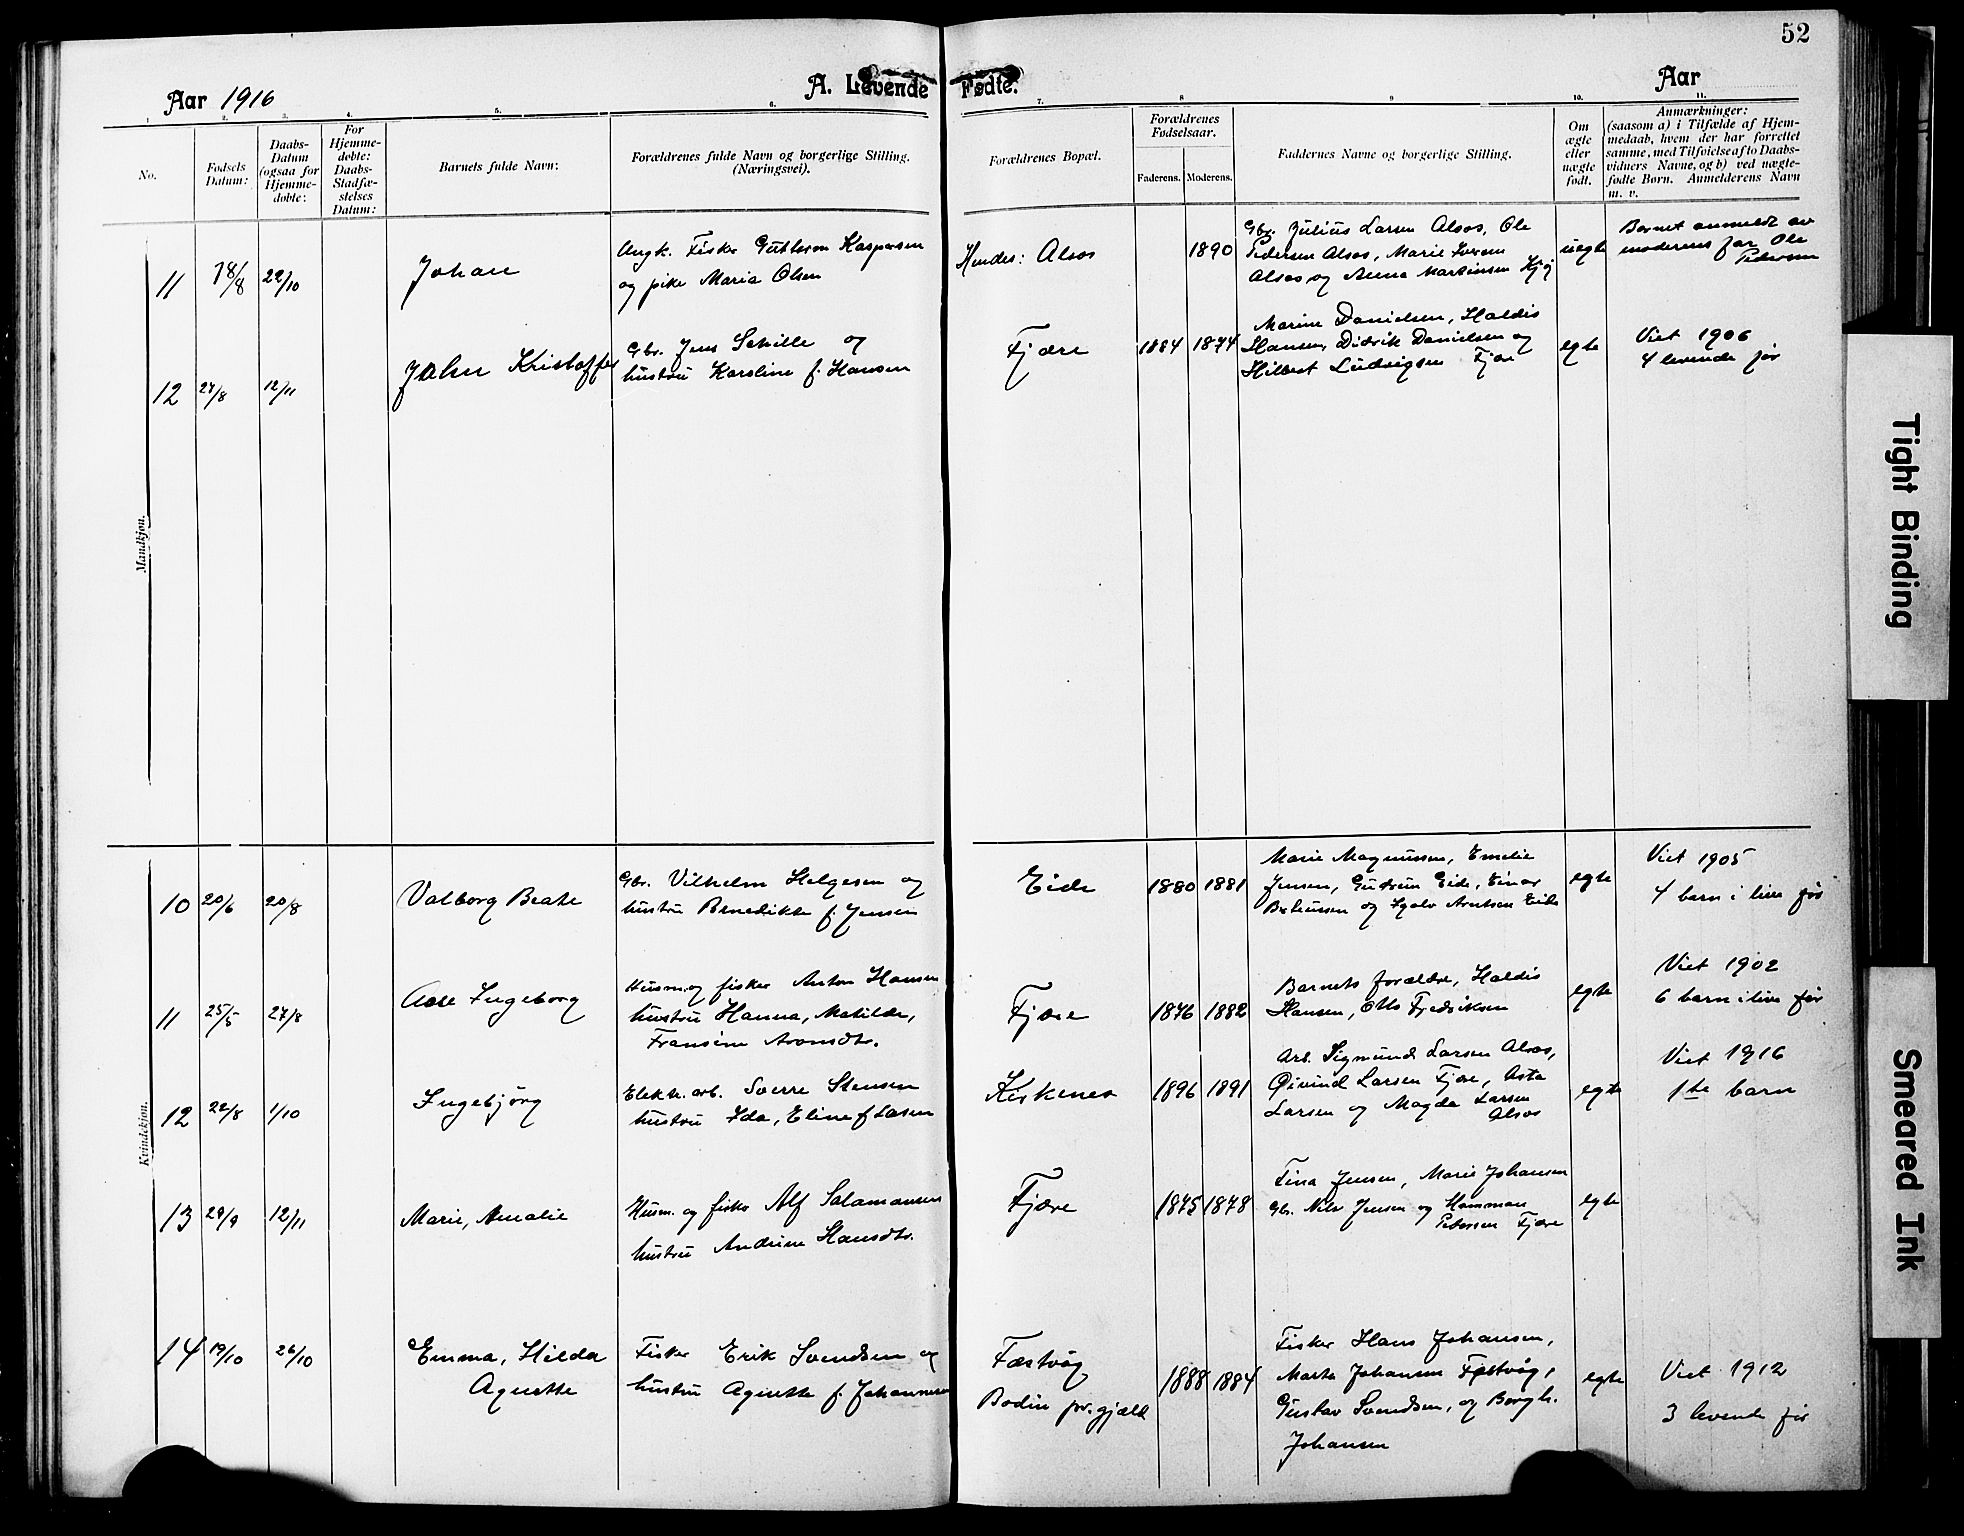 52
Aar 1916
A. Levende Fødte.
Aar
1. 2. 3. 4. 5. 6. 7. 8 9 10. 11.
No.
Fødsels Datum:
Daabs-Datum (ogsaa for Hjemmedøbte:
For Hjemmedøbte: Daabs-Stadfæstelses Datum:
Barnets fulde Navn:
Forældrenes fulde Navn og borgerlige Stilling. (Næringsvei).
Forældrenes Bopæl.
Forældrenes Fødselsaar.
Faderens. Moderens.
Faddernes Navne og borgerlige Stilling.
Om ægte eller uægte født.
Anmærkninger: (saasom a) i Tilfælde af Hjemmedaab, hvem der har forrettet samme, med Tilføielse af to Daabsvidners Navne, og b) ved uægtefødte Børn. Anmelderens Navn m. v.
Mandkjøn.
11 18/8 22/10 Johan
Angk. Fisker Guttorm Kaspersen
og pike Maria Olsen
Hendes: Alsos
1890
Gbr. Julius Larsen Alsos, Ole
Pedersen Alsos, Marie Iversen
Alsos og Anna Martinsen
uegte
Barnet anmeldt av
moderens far Ole
Pedersen
12 27/8 12/11 John Kristoffer
Gbr. Jens Schille og
hustru Karoline f. Hansen
Fjære
1884 1874
Marine Danielsen, Haldis
Hansen, Didrik Danielsen og
Hilbert Ludvigsen Fjære
egte
Viet 1906
4 levende før
Kvindekjøn.
10 20/6 20/8 Valborg Beate
Gbr. Vilhelm Helgesen og
hustru Benedikte f. Jensen
Eide
1880 1881
Marie Magnussen, Emelie
Jensen, Gudrun Eide, Einar
og Arntsen Eide
egte
Viet 1905
4 barn i live før
11 25/5 27/8 Aase Ingeborg
Husm. og fisker Anton Hansen
hustru Hanna, Matilde,
Fransine Aronsdtr.
Fjære
1876 1882
Barnets forældre, Haldis
Hansen, Otto Fredriksen
egte
Viet 1902
6 barn i live før
12 22/8 1/10 Ingebjörg
Elektr. arb. Sverre Stensen
hustru Ida, Eline f Lasen
Kirkenes
1896 1891
Arb. Sigmund Larsen Alsos,
Øivind Larsen Fjære, Asta
Larsen og Magda Larsen
Alsos
egte
Viet 1916
1ste barn
13 29/9 12/11 Marie, Amalie
Husm. og fisker Alf Salamonsen
hustru Andrine Hansdtr.
Fjære
1875 1878
Tina Jensen, Marie Johansen
Gbr. Nils Jensen og Hamman
Pedersen Fjære
egte
14 19/10 26/10 Emma, Hilda
Agnette
Fisker Erik Svendsen og
hustru Agnette f. Johannesen
Fæstvåg
Bodin pr.gjæld
1888 1884
Fisker Hans Johansen,
Marta Johansen Fæstvåg,
Gustav Svendsen, og Bergh.
Johansen
egte
Viet 1912
3 levende før
Tight Binding
Smeared Ink